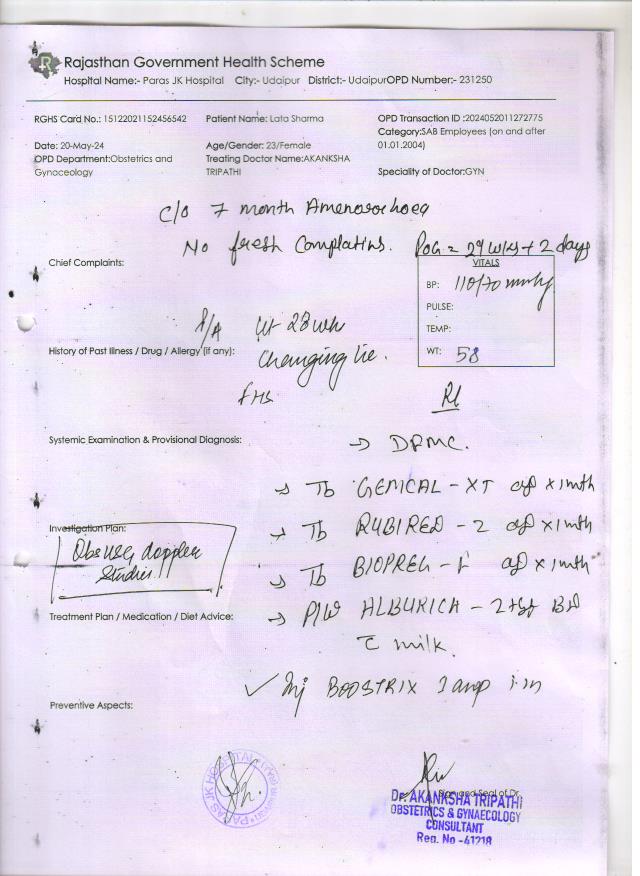 Rajasthan Government Health Scheme
Hospital Name:- Paras JK Hospital City:- Udaipur District:- UdaipurOPD Number:- 231250
RGHS Card No.: 15122021152456542 Patient Name: Lata Sharma OPD Transaction ID :2024052011272775
Category:SAB Employees (on and after
01.01.2004)
Date: 20-May-24 Age/Gender: 23/Female
OPD Department:Obstetrics and Treating Doctor Name:AKANKSHA
Gynoceology TRIPATHI Speciality of Doctor:GYN
C/o 7 month Amenorrhoea
No fresh Complatins. POG = 29 wks + 2 days
Chief Complaints:
VITALS
BP: 110/70 mmHg
PULSE:
TEMP:
WT: 58
P/A Ut 28 wk
History of Past Illness / Drug / Allergy (if any):
Changing lie.
FHS
Rx
Systemic Examination & Provisional Diagnosis:
→ DFMC.
→ Tb GEMCAL - XT x 1 mth
Investigation Plan:
→ Tb RUBIRED - Z x 1 mth
Obs USG doppler
Studies
→ Tb BIOPREG - F x 1 mth
Treatment Plan / Medication / Diet Advice:
→ P/W ALBURICA - 2 tsf BD
c̄ milk.
✓ Inj BOOSTRIX 1 amp i.m
Preventive Aspects:
PARAS JK HOSPITAL
Sign and Seal of Dr.
Dr. AKANKSHA TRIPATHI
OBSTETRICS & GYNAECOLOGY
CONSULTANT
Reg. No -41218